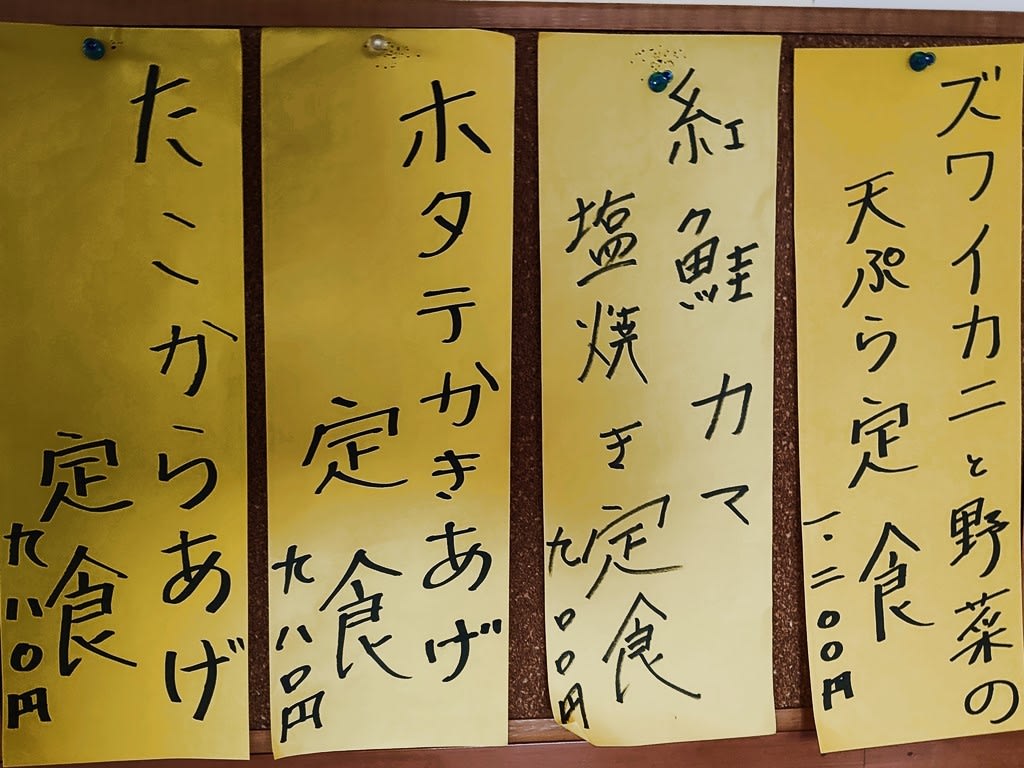 ズワイカニと野菜の
天ぷら定食
一、二〇〇円
紅鮭カマ
塩焼き定食
九〇〇円
ホタテかきあげ
定食
九八〇円
たこからあげ
定食
九八〇円